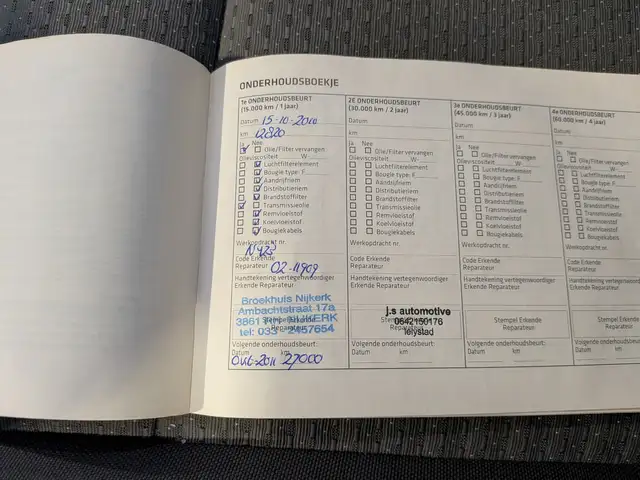 ONDERHOUDSBOEKJE
1e ONDERHOUDSBEURT
(15.000 km / 1 jaar)
Datum 15-10-2010
km 12820
Ja Nee
Olie/Filter vervangen
Olieviscositeit W-
Luchtfilterelement
Bougie type: F
Aandrijfriem
Distributieriem
Brandstoffilter
Transmissieolie
Remvloeistof
Koelvloeistof
Bougiekabels
Werkopdracht nr.
Code Erkende
Reparateur 02-11909
Handtekening vertegenwoordiger
Erkende Reparateur
Broekhuis Nijkerk
Ambachtstraat 17a
NIJKERK
tel: 033 - 2457654
Volgende onderhoudsbeurt:
Datum km
2011 27000
2E ONDERHOUDSBEURT
(30.000 km / 2 jaar)
Datum
km
Ja Nee
Olie/Filter vervangen
Olieviscositeit W-
Luchtfilterelement
Bougie type: F
Aandrijfriem
Distributieriem
Brandstoffilter
Transmissieolie
Remvloeistof
Koelvloeistof
Bougiekabels
Werkopdracht nr.
Code Erkende
Reparateur
Handtekening vertegenwoordiger
Erkende Reparateur
j.s automotive
Stempel Erkende
0642150176
Reparateur
lelystad
Volgende onderhoudsbeurt:
Datum km
3e ONDERHOUDSBEURT
(45.000 km / 3 jaar)
Datum
km
Ja Nee
Olie/Filter vervangen
Olieviscositeit W-
Luchtfilterelement
Bougie type: F
Aandrijfriem
Distributieriem
Brandstoffilter
Transmissieolie
Remvloeistof
Koelvloeistof
Bougiekabels
Werkopdracht nr.
Code Erkende
Reparateur
Handtekening vertegenwoordiger
Erkende Reparateur
Stempel Erkende
Reparateur
Volgende onderhoudsbeurt:
Datum km
4e ONDERHOUDSBEURT
(60.000 km / 4 jaar)
Datum
km
Ja Nee
Olie/Filter vervangen
Olieviscositeit W-
Luchtfilterelement
Bougie type: F
Aandrijfriem
Distributieriem
Brandstoffilter
Transmissieolie
Remvloeistof
Koelvloeistof
Bougiekabels
Werkopdracht nr.
Code Erkende
Reparateur
Handtekening vertegenwoordiger
Erkende Reparateur
Stempel Erkende
Reparateur
Volgende onderhoudsbeurt:
Datum km